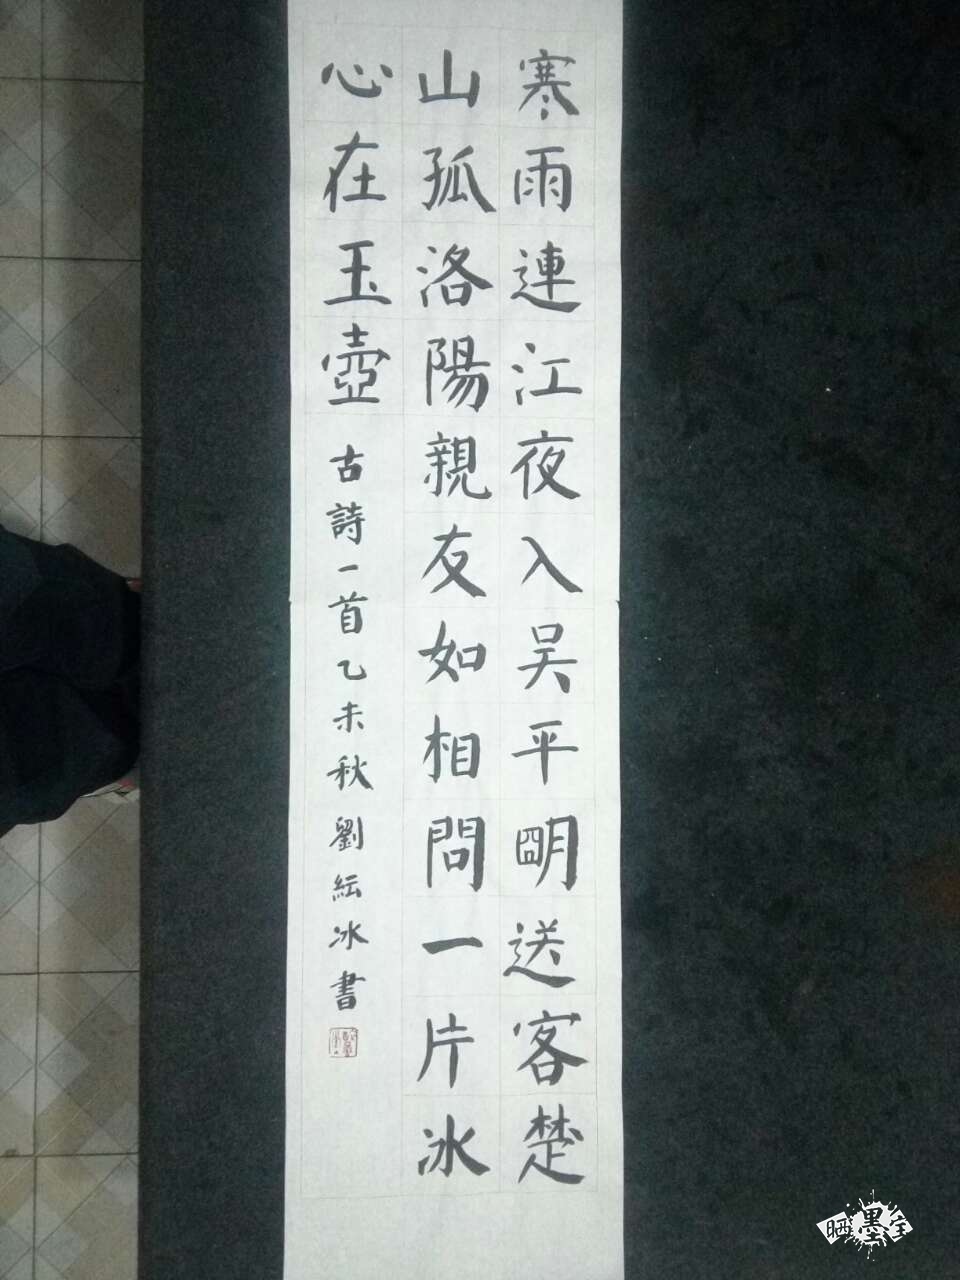 寒雨連江夜入吴平明送客楚
山孤洛陽親友如相問一片冰
心在玉壺
古詩一首乙未秋劉紜冰書
晒墨宝